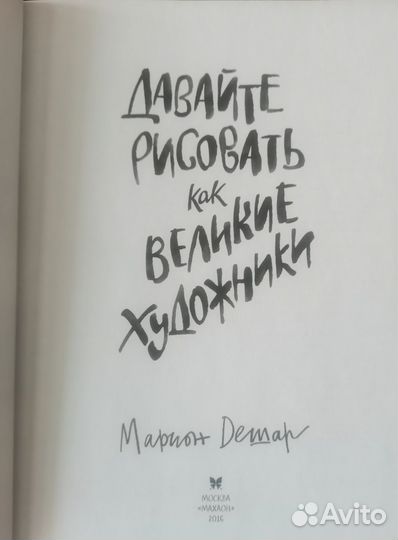 ДАВАЙТЕ
РИСОВАТЬ
как
ВЕЛИКИЕ
ХУДОЖНИКИ
Марион Дешар
МОСКВА
«МАХАОН»
2016
Avito